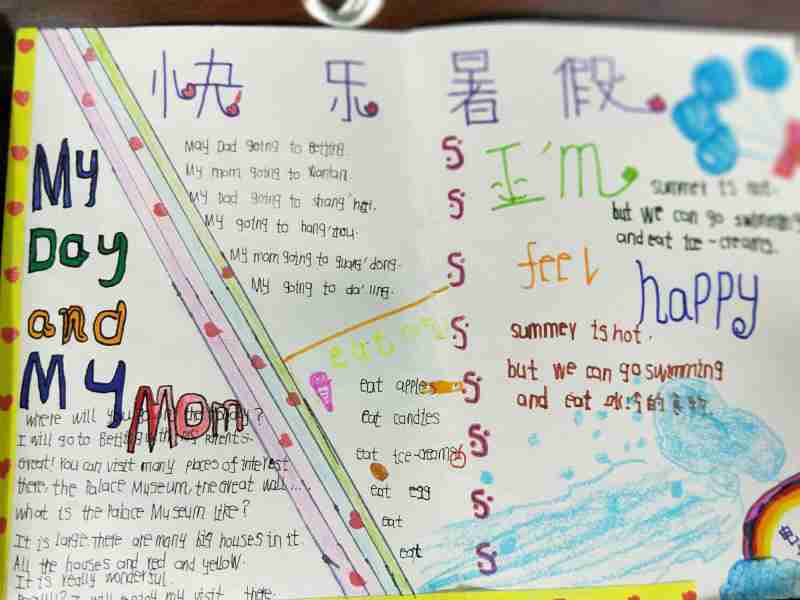 快乐暑假
My
Day
and
My
Mom
May Dad going to Beijing.
My mom going to
My Dad going to shang'hai.
My going to hang'zhou.
My mom going to guang'dong.
My going to da'ling.
I'm
feel
happy
summer is hot.
but we can go swimming
and eat ice-creams.
summer is hot.
but we can go swimming
and eat
eat
eat apples
eat candles
eat ice-creams
eat egg
eat
eat
where will you the holiday?
I will go to Beijing with my parents.
Great! You can visit many places of interest
there, the Palace Museum, the Great Wall....
what is the Palace Museum like?
It is large there are many big houses in it.
All the houses and red and yellow.
It is really wonderful.
Really? I will enjoy my visit there.